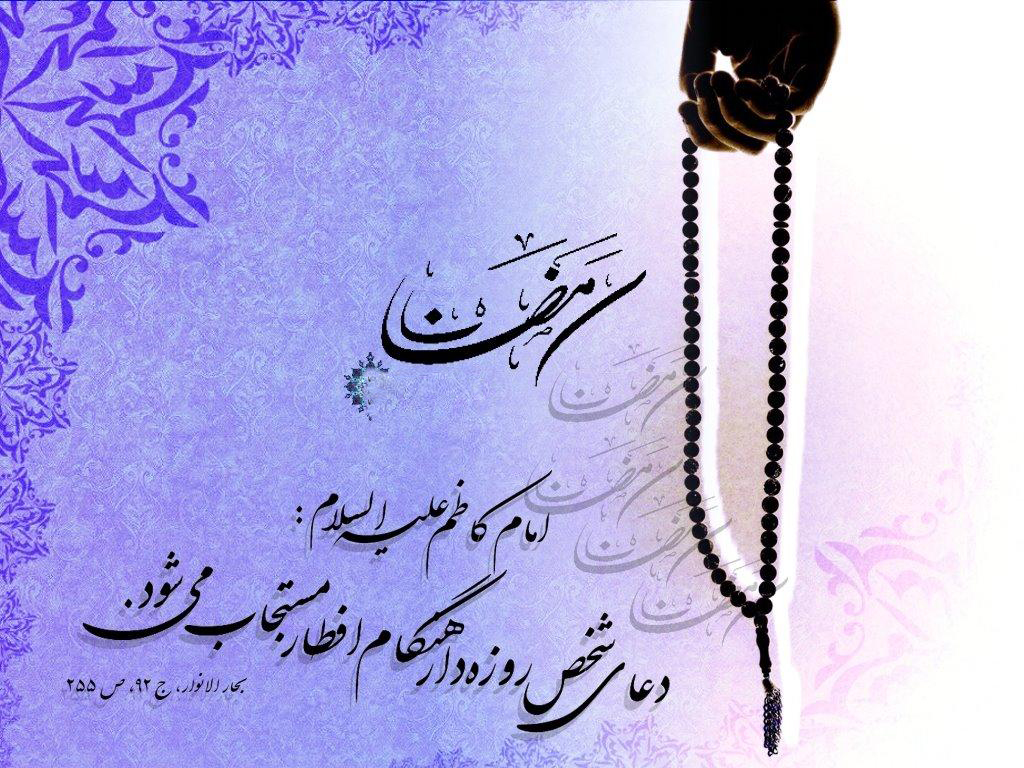 رمضان
رمضان
رمضان
رمضان
رمضان
امام کاظم علیه السلام :
دعای شخص روزه‌دار هنگام افطار مستجاب می‌شود.
بحار الانوار، ج ۹۲، ص ۲۵۵